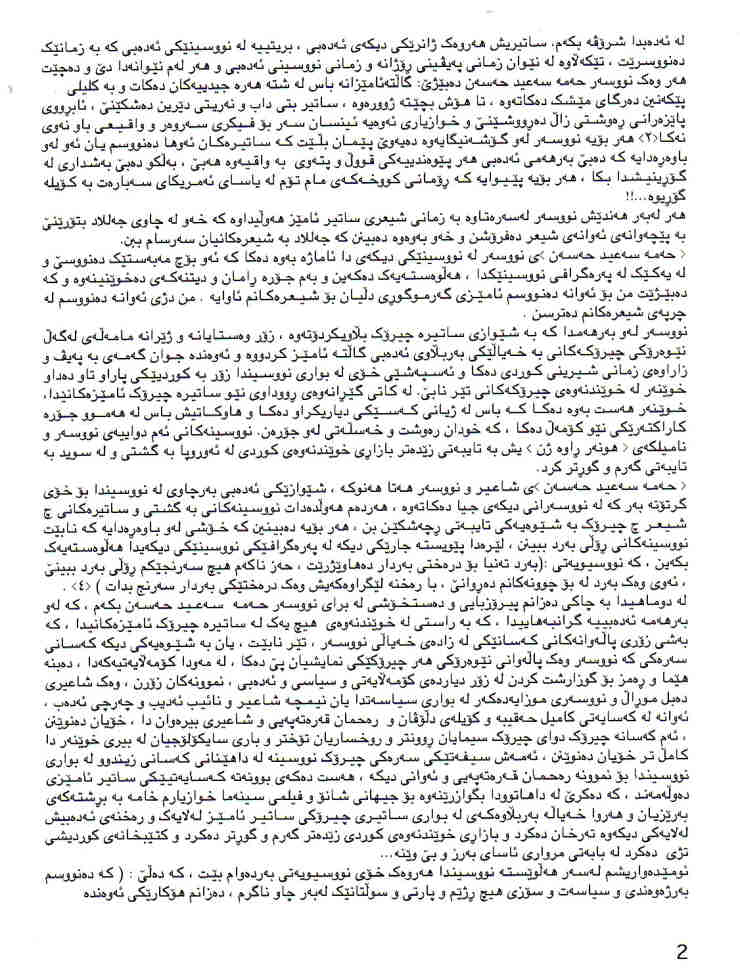 لە ئەدەبدا شرۆڤە بکەم. ساتیریش هەروەک ژانرێکی دیکەی ئەدەبی ، بریتییە لە نووسینێکی ئەدەبی کە بە زمانێک
دەنووسرێت ، تێکەڵاوە لە نێوان زمانی پەیڤینی ڕۆژانە و زمانی نووسینی ئەدەبی و هەر لەم نێوانەدا دێ و دەچێت
هەر وەک نووسەر حەمە سەعید حەسەن دەبێژێ: گاڵتەئامێزانە باس لە شتە هەرە جیدییەکان دەکات و بە کلیلی
پێکەنین دەرگای مێشک دەکاتەوە ، تا هۆش بچێتە ژوورەوە ، ساتیر بتی داب و نەریتی دێرین دەشکێنێ ، ئابڕووی
پارێزەرانی ڕەوشتی زاڵ دەڕووشێنێ و خوازیاری ئەوەیە ئینسان سەر بۆ فیکری سەروەر و واقیعی باو نەوی
نەکا<٢> هەر بۆیە نووسەر لەو گۆشەنیگایەوە دەیەوێ پێمان بڵێت کە ساتیرەکان ئەوها دەنووسم یان ئەو لەو
باوەڕەدایە کە دەبێ بەرهەمی ئەدەبی هەر پێوەندییەکی قووڵ و پتەوی بە واقیەوە هەبێ ، بەڵکو دەبێ بەشداری لە
گۆڕینیشدا بکا ، هەر بۆیە پێیوایە کە ڕۆمانی کووخەکەی مام تۆم لە یاسای ئەمریکای سەبارەت بە کۆیلە
گۆڕیوە...!!
هەر لەبەر هەندێش نووسەر لەسەرەتاوە بە زمانی شیعری ساتیر ئامێز هەوڵیداوە کە خەو لە چاوی جەللاد بتۆرێنێ
بە پێچەوانەی ئەوانەی شیعر دەفرۆشن و خەو بەوەوە دەبینن کە جەللاد بە شیعرەکانیان سەرسام ببن.
< حەمە سەعید حەسەن >ی نووسەر لە نووسینێکی دیکەی دا ئاماژە بەوە دەکا کە ئەو بۆچ مەبەستێک دەنووسێ و
لە یەکێک لە پەرەگرافی نووسینێکدا ، هەڵوەستەیەک دەکەین و بەم جۆرە ڕامان و دیتنەکەی دەخوێنینەوە و کە
دەبێژێت من بۆ ئەوانە دەنووسم ئامێزی گەرموگوڕی دڵیان بۆ شیعرەکانم ئاوایە . من دژی ئەوانە دەنووسم لە
چرپەی شیعرەکانم دەترسن .
نووسەر لەو بەرهەمدا کە بە شێوازی ساتیرە چیرۆک بڵاویکردۆتەوە ، زۆر وەستایانە و ژێرانە مامەڵەی لەگەڵ
نێوەرۆکی چیرۆکەکانی بە خەیاڵێکی بەربڵاوی ئەدەبی گاڵتە ئامێز کردووە و ئەوەندە جوان گەمەی بە پەیڤ و
زاراوەی زمانی شیرینی کوردی دەکا و ئەسپەشێی خۆی لە بواری نووسیندا زۆر بە کوردیێکی پاراو تاو دەداو
خوێنەر لە خوێندنەوەی چیرۆکەکانی تێر نابێ. لە کاتی گێڕانەوەی ڕووداوی نێو ساتیرە چیرۆک ئامێزەکانیدا،
خوێنەر هەست بەوە دەکا کە باس لە ژیانی کەسێکی دیاریکراو دەکا و هاوکاتیش باس لە هەموو جۆرە
کاراکتەرێکی نێو کۆمەڵ دەکا ، کە خودان ڕەوشت و خەسڵەتی لەو جۆرەن. نووسینەکانی ئەم دواییەی نووسەر و
نامیلکەی < هونەر ڕاوە ژن > یش بە تایبەتی زێدەتر بازاڕی خوێندنەوەی کوردی لە ئەوروپا بە گشتی و لە سوید بە
تایبەتی گەرم و گوڕتر کرد.
< حەمە سەعید حەسەن >ی شاعیر و نووسەر هەتا هەنوکە ، شێوازێکی ئەدەبی بەرچاوی لە نووسیندا بۆ خۆی
گرتۆتە بەر کە لە نووسەرانی دیکەی جیا دەکاتەوە ، هەردەم هەوڵدەدات نووسینەکانی بە گشتی و ساتیرەکانی چ
شیعر چ چیرۆک بە شێوەیەکی تایبەتی ڕچەشکێن بن ، هەر بۆیە دەبینین کە خۆشی لەو باوەڕەدایە کە نابێت
نووسینەکانی ڕۆڵی بەرد ببینن ، لێرەدا پێویستە جارێکی دیکە لە پەرەگرافێکی نووسینێکی دیکەیدا هەڵوەستەیەک
بکەین ، کە نووسیویەتی :(بەرد تەنیا بۆ درەختی بەردار دەهاوێژرێت ، حەز ناکەم هیچ سەرنجێکم ڕۆڵی بەرد ببینێ
، ئەوی وەک بەرد لە بۆ چوونەکانم دەڕوانێ ، با رەخنە لێگراوەکەیش وەک درەختێکی بەردار سەرنج بدات ) <٤> .
لە دوماهیدا بە چاکی دەزانم پیرۆزبایی و دەستخۆشی لە برای نووسەر حەمە سەعید حەسەن بکەم ، کە لەو
بەرهەمە ئەدەبییە گرانبەهاییدا ، کە بە راستی لە خوێندنەوەی هیچ یەک لە ساتیرە چیرۆک ئامێزەکانیدا ، کە
بەشی زۆری پاڵەوانەکانی کەسانێکی لە زادەی خەیاڵی نووسەر ، تێر نابێت ، یان بە شێوەیەکی دیکە کەسانی
سەرەکی کە نووسەر وەک پاڵەوانی نێوەرۆکی هەر چیرۆکێکی نمایشیان پێ دەکا ، لە مەودا کۆمەلایەتیەکەدا ، دەبنە
هێما و ڕەمز بۆ گوزارشت کردن لە زۆر دیاردەی کۆمەڵایەتی و سیاسی و ئەدەبی ، نموونەکان زۆرن ، وەک شاعیری
دەبل مۆراڵ و نووسەری موزایەدەکەر لە بواری سیاسەتدا یان نیمچە شاعیر و نائیب ئەدیب و چەرچی ئەدەب ،
ئەوانە لە کەسایەتی کامیل حەقیبە و کۆیلەی دڵۆڤان و رەحمان قەرەتەپەیی و شاعیری بیرەوان دا ، خۆیان دەنوێنن
، ئەم کەسانە چیرۆک دوای چیرۆک سیمایان ڕوونتر و روخساریان تۆختر و باری سایکۆلۆجیان لە بیری خوێنەر دا
کامڵ تر خۆیان دەنوێنن ، ئەمەش سیفەتێکی سەرەکی چیرۆک نووسینە لە داهێنانی کەسانی زیندوو لە بواری
نووسیندا بۆ نموونە رەحمان قەرەتەپەیی و ئەوانی دیکە ، هەست دەکەی بوونەتە کەسایەتییێکی ساتیر ئامێزی
دەوڵەمەند ، کە دەکرێ لە داهاتوودا بگوازرێنەوە بۆ جیهانی شانۆ و فیلمی سینەما خوازیارم خامە بە برشتەکەی
بەرێزیان و هەروا خەیاڵە بەربڵاوەکەی لە بواری ساتیری چیرۆکی ساتیر ئامێز لەلایەک و رەخنەی ئەدەبیش
لەلایەکی دیکەوە تەرخان دەکرد و بازاڕی خوێندنەوەی کوردی زێدەتر گەرم و گوڕتر دەکرد و کتێبخانەی کوردیشی
تژی دەکرد لە بابەتی مرواری ئاسای بەرز و بێ وێنە...
ئومێدەواریشم لەسەر هەڵوێستە نووسیندا هەروەک خۆی نووسیویەتی بەردەوام بێت ، کە دەڵێ : ( کە دەنووسم
بەرژەوەندی و سیاسەت و سۆزی هیچ ڕژێم و پارتی و سوڵتانێک لەبەر چاو ناگرم ، دەزانم هۆکارێکی ئەوەندە
2